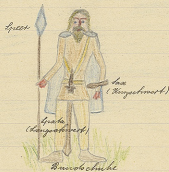 Speer
Sax
(Kurzschwert)
Spata
(Langschwert)
Bundschuhe